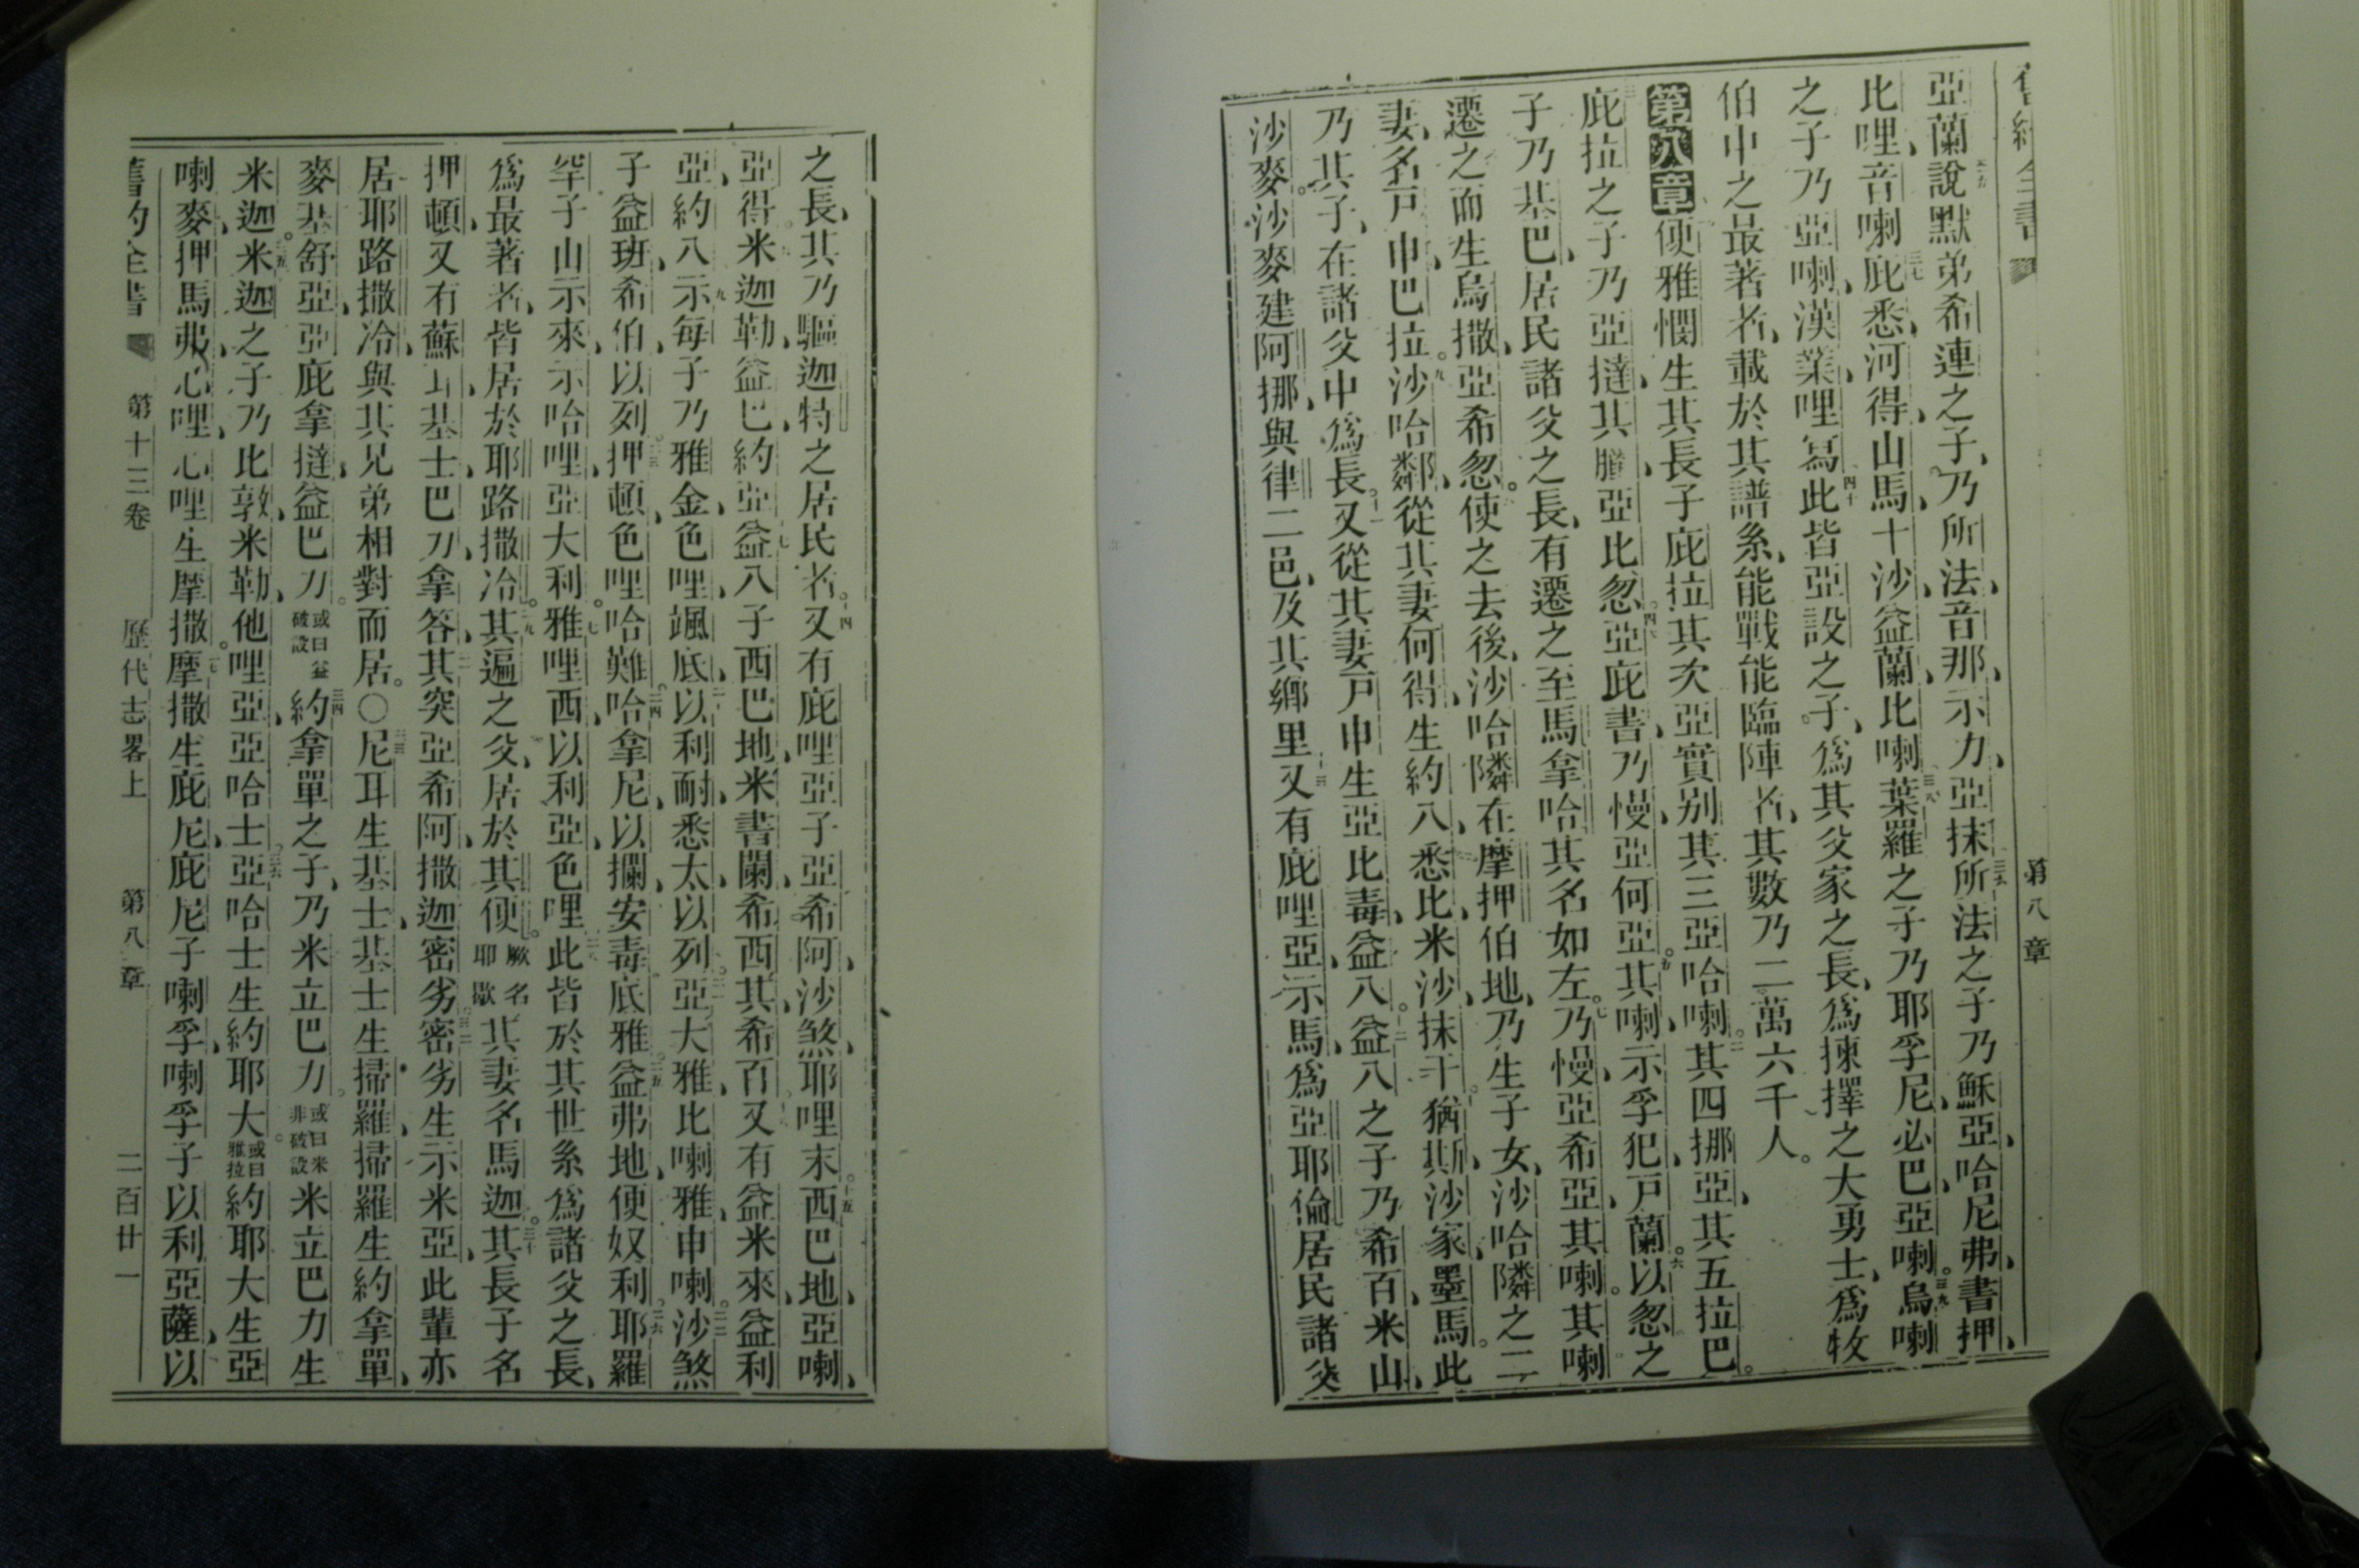 舊約全書 第八章
亞蘭說默弟希連之子乃所法音那示力亞抹所法之子乃穌亞哈尼弗書押
比哩音喇庇悉河得山馬十沙益蘭比喇葉羅之子乃耶孚尼必巴亞喇烏喇
之子乃亞喇漢業哩寫此皆亞設之子爲其父家之長爲揀擇之大勇士爲牧
伯中之最著者載於其譜系能戰能臨陣者其數乃二萬六千人
第八章便雅憫生其長子庇拉其次亞實別其三亞哈喇其四挪亞其五拉巴
庇拉之子乃亞撻其亞比忽亞庇書乃慢亞何亞其喇示孚犯戸蘭以忽之
子乃基巴居民諸父之長有遷之至馬拿哈其名如左乃慢亞希亞其喇其喇
遷之而生烏撒亞希忽使之去後沙哈隣在摩押伯地乃生子女沙哈隣之二
妻名戸申巴拉沙哈鄰從其妻何得生約八悉比米沙抹干猶斯沙家墨馬此
乃其子在諸父中爲長又從其妻戸申生亞比毒益八益八之子乃希百米山
沙麥沙麥建阿挪與律二邑及其鄉里又有庇哩亞示馬爲亞耶倫居民諸父
之長其乃驅迦特之居民者又有庇哩亞子亞希阿沙煞耶哩末西巴地亞喇
亞得米迦勒益巴約亞益八子西巴地米書闌希西其希百又有益米來益利
亞約八示每子乃雅金色哩颯底以利耐悉太以列亞大雅比喇雅申喇沙煞
子益班希伯以列押頓色哩哈難哈拿尼以攔安毒底雅益弗地便奴利耶羅
罕子山示來示哈哩亞大利雅雅哩西以利亞色哩此皆於其世系爲諸父之長
爲最著者皆居於耶路撒冷其遍之父居於其便厥名耶歇其妻名馬迦其長子名
押頓又有蘇耳基士巴力拿答其突亞希阿撒迦密劣密劣生示米亞此輩亦
居耶路撒冷與其兄弟相對而居〇尼耳生基士基士生掃羅掃羅生約拿單
麥基舒亞亞庇拿撻益巴力或曰益破設約拿單之子乃米立巴力或曰米非破設米立巴力生
米迦米迦之子乃比敦米勒他哩亞亞哈士亞哈士生約耶大或曰雅拉約耶大生亞
喇麥押馬弗心哩心哩生摩撒摩撒生庇尼庇尼子喇孚喇孚子以利亞薩以
舊約全書 第十三卷 歷代志畧上 第八章 二百廿一